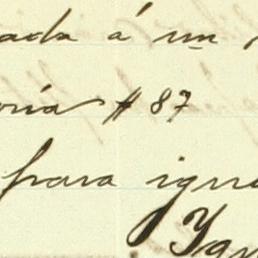 ada á un
oria # 87
para igua